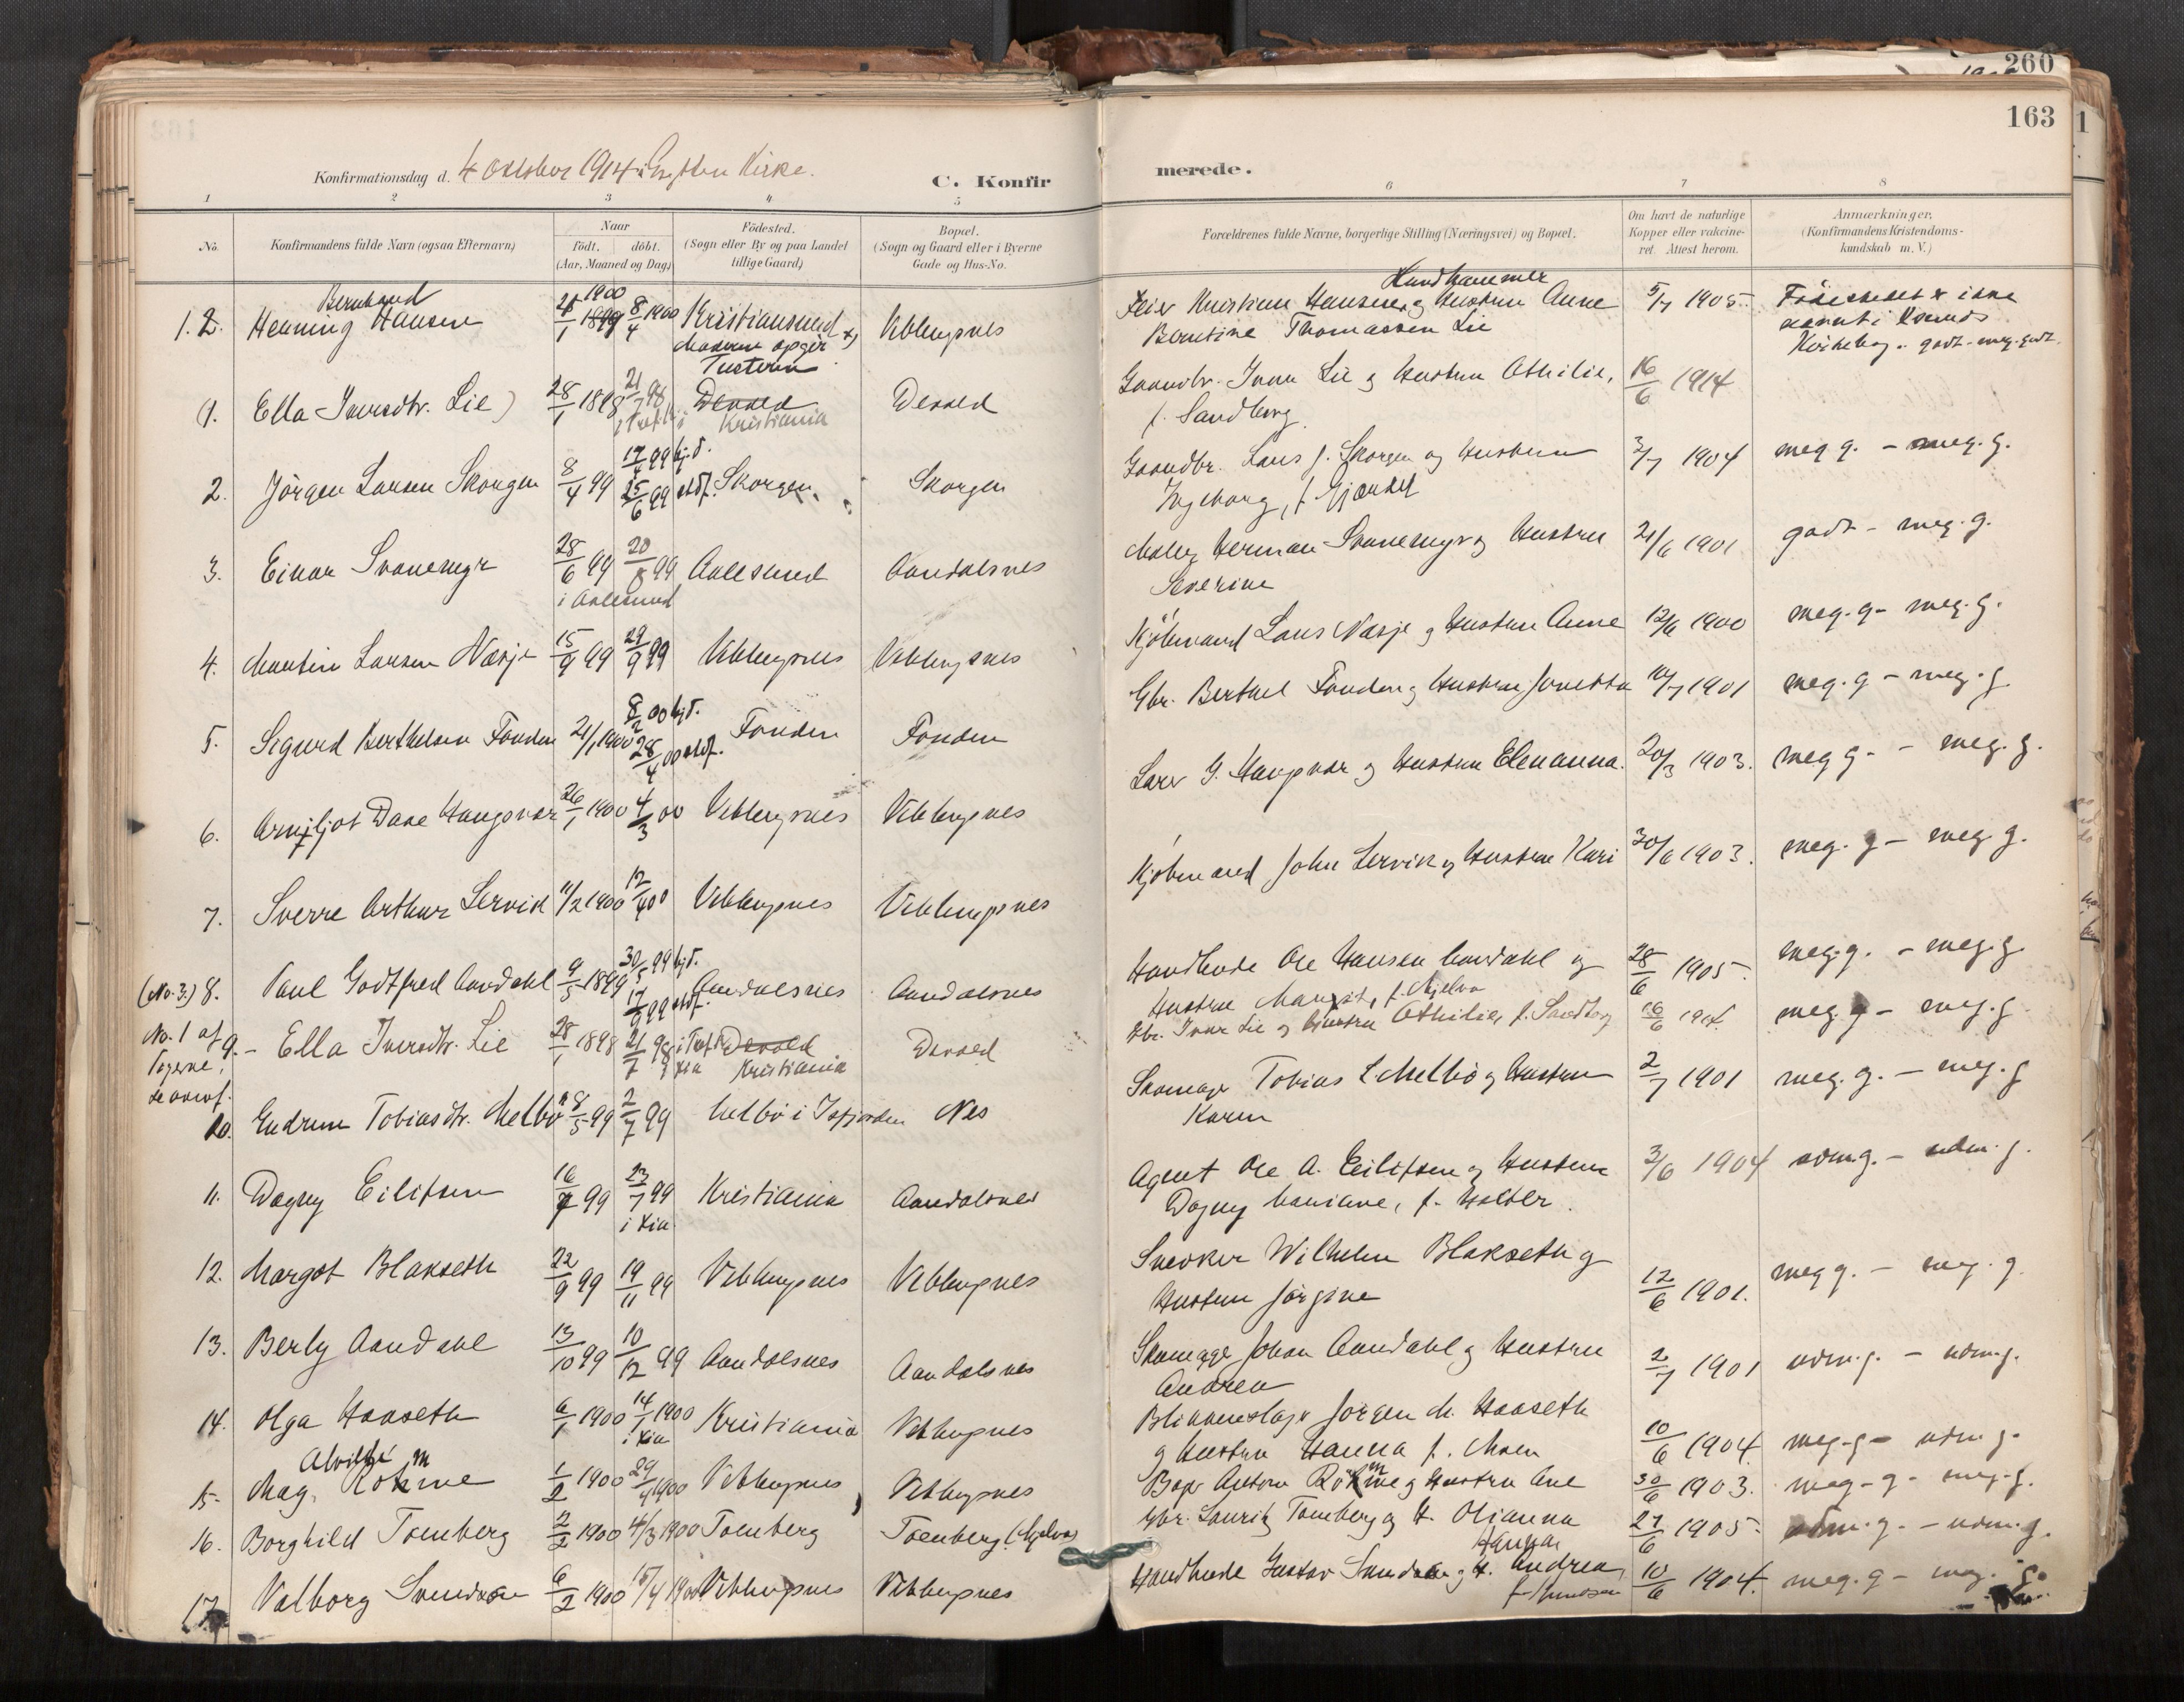 260
163
Konfirmationsdag d. 4 oktober 1914 i Grytten Kirke.
C. Konfirmerede.
1 2 3 4 5 6 7 8
No.
Konfirmandens fulde Navn (ogsaa Efternavn)
Naar
födt. döbt.
(Aar, Maaned og Dag)
Födested.
(Sogn eller By og paa Landet
tillige Gaard)
Bopæl.
(Sogn og Gaard eller i Byerne
Gade og Hus-No.
Forældrenes fulde Navne, borgerlige Stilling (Næringsvei) og Bopæl.
Om havt de naturlige
Kopper eller vakcine-
ret. Attest herom.
Anmærkninger.
(Konfirmandens Kristendoms-
kundskab m. V.)
Bernhard
1. 2. Henning Hansen 1/1 1899 1900 8/4 1900 Kristiansund x) Veblungsnes Kristian Hansen og Hustru Anne 5/7 1905.
Moderen opgir
Tusteren
Berntine Thomassen Lie
Kirkebog. godt - meg. godt.
(1. Ella Iversdtr. Lie) 28/1 1898 21/7 98 Devold Devold Gaardbr. Iver Lie og Hustru Othilie, 16/6 1914
Kristiania
f. Sandberg
2. Jörgen Larsen Skorgen 8/4 99 17/4 99 hj.d. Skorgen Skorgen Gaardbr. Lars J. Skorgen og Hustru 3/7 1904 meg g. - meg. g.
25/6 99 stdf.
Ingeborg, f. Gjerdet
3. Einar Svanemyr 28/6 99 20/8 99 Aalesund Aandalsnes Maler Herman Svanemyr og Hustru 21/6 1901 godt - meg. g.
i Aalesund
Severine
4. Martin Larsen Næsje 15/9 99 29/9 99 Veblungsnes Veblungsnes Kjöbmand Lars Næsje og Hustru Anne 12/6 1900 meg. g - meg. g.
5. Sigurd Berthelsen Fonden 21/1 1900 8/2 00 hj.d. Fonden Fonden Gbr. Berthel Fonden og Hustru Jonetta 10/7 1901 meg. g - meg. g
28/4 00 stdf.
6. Arnljot Dave Haugsvær 26/1 1900 4/3 00 Veblungsnes Veblungsnes Lars G. Haugsvær og Hustru Elenanna. 20/3 1903. meg g - - meg. g.
7. Sverre Arthur Lervik 11/2 1900 12/4 00 Veblungsnes Veblungsnes Kjöbmand John Lervik og Hustru Kari 30/6 1903. meg. g - meg g.
(No. 3.) 8. Paul Godtfred Aandahl 9/5 1899 30/5 99 hj.d. Aandalsnes Aandalsnes Handlende Ole Hansen Aandahl og 28/6 1905. meg. g. - meg. g
17/9 99 stdf.
Hustru Margit, f. Mjelva
No. 1 af 9. - Ella Iversdtr. Lie 28/1 1898 21/7 98 Devold Devold Gbr. Iver Lie og Hustru Othilie, f. Sandberg 16/6 1914. meg. g - meg. g
Pigerne, i Kia Kristiania
se ovenf.
10. Gudrun Tobiasdtr. Melbö 18/5 99 2/7 99 Melbö i Isfjorden Nes Skomager Tobias L. Melbö og Hustru 2/7 1901 meg. g. - meg. g
Karen
11. Dagny Eilifsen 16/4 99 23/7 99 Kristiania Aandalsnes Agent Ole A. Eilifsen og Hustru 3/6 1904 udm. g. - udm. g.
i Kia
Dagny Mariane, f. Holter.
12. Margot Blakseth 22/9 99 19/11 99 Veblungsnes Veblungsnes Snedker Wilhelm Blakseth og 12/6 1901. meg g. - meg. g
Hustru Jörgine
13. Berly Aandahl 13/10 99 10/12 99 Aandalsnes Aandalsnes Skomager Johan Aandahl og Hustru 2/7 1901 udm. g. - udm. g.
Andrea
14. Olga Haaseth 6/1 1900 14/1 1900 Kristiania Veblungsnes Blikkenslager Jörgen M. Haaseth 10/6 1904. meg. g - udm. g.
i Kia
og Hustru Hanna f. Moen
Alvilde m
15. Mag. Röhme 1/2 1900 29/4 1900 Veblungsnes Veblungsnes Bager Anton Röhme og Hustru Ane 30/6 1903. meg. g - meg. g.
16. Borghild Tomberg 2/2 1900 4/3 1900 Tomberg Tomberg (Mjelva) Gbr. Laurits Tomberg og H. Olianna 27/6 1905. udm. g. - udm. g.
Hanna
17. Valborg Svendsen 6/2 1900 15/4 1900 Veblungsnes Veblungsnes Handlende Gustav Svendsen og H. Andrea, 10/6 1904. meg. g - meg. g.